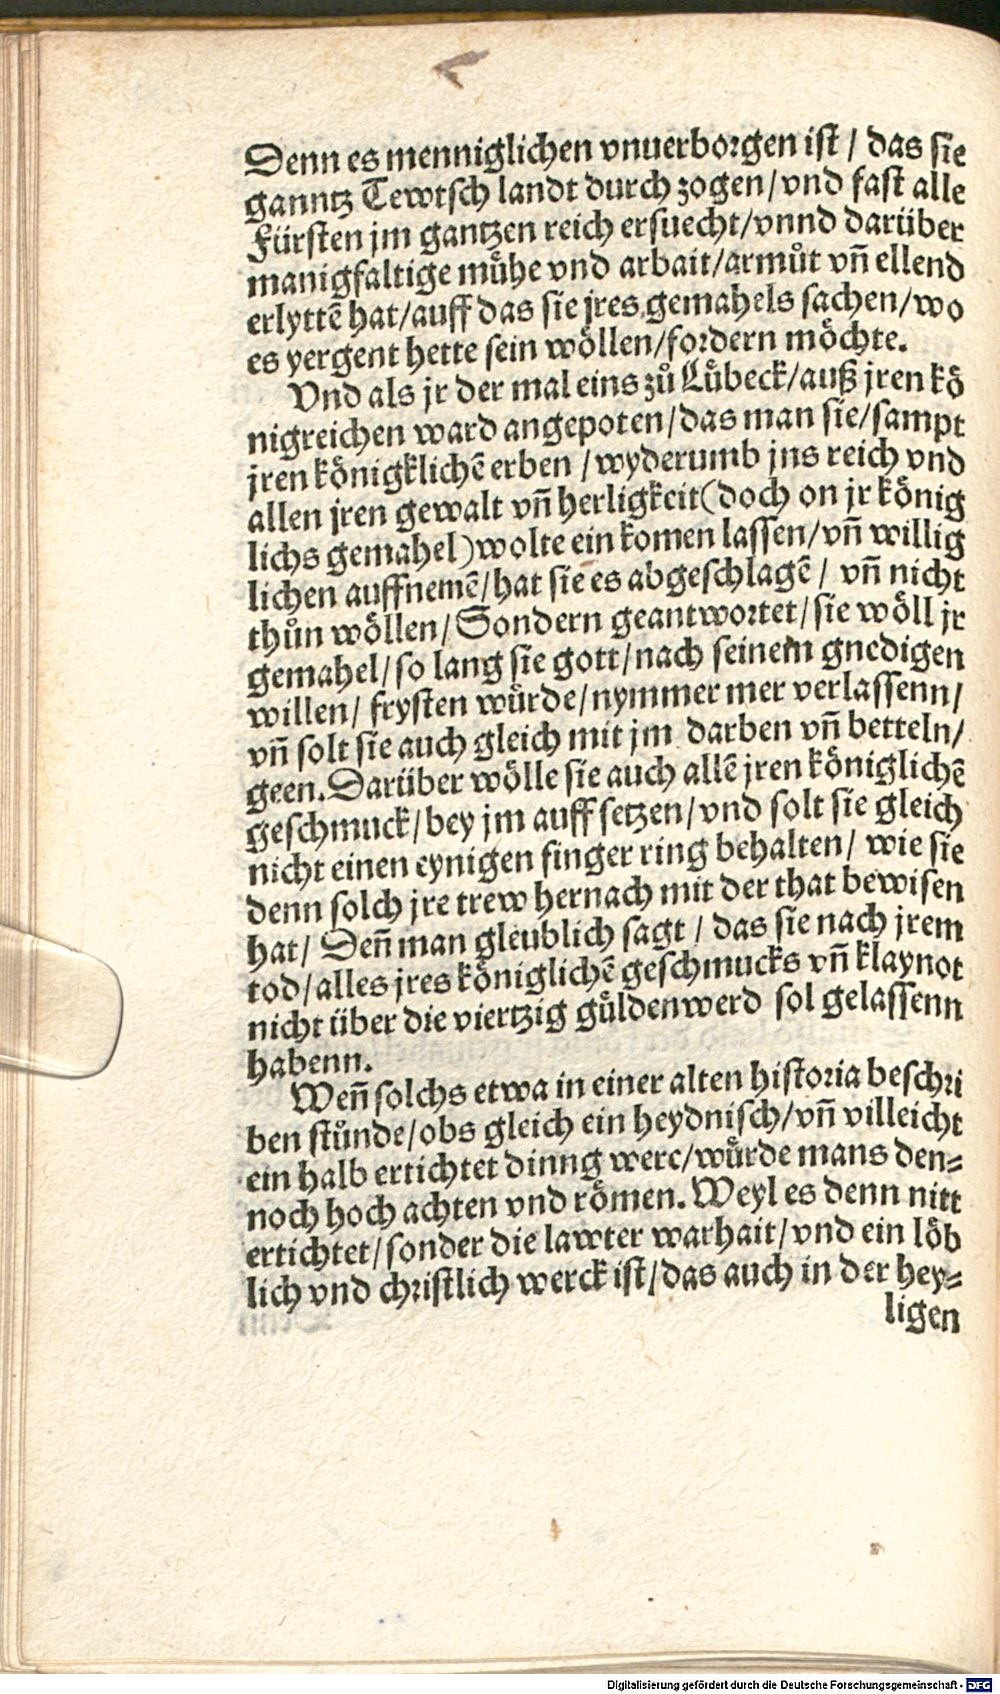 Denn es menniglichen vnuerborgen ist / das sie
ganntz Tewtsch landt durch zogen/vnd fast alle
Fürsten jm gantzen reich ersuecht/vnnd darüber
manigfaltige mühe vnd arbait/armůt vñ ellend
erlyttẽ hat/auff das sie jres gemahels sachen/wo
es yergent hette sein wöllen/fordern möchte.
Vnd als jr der mal eins zů Lübeck/auß jren kö
nigreichen ward angepoten/das man sie/sampt
jren königklichẽ erben / wyderumb jns reich vnd
allen jren gewalt vñ herligkeit(doch on jr könig
lichs gemahel)wolte ein komen lassen/vñ willig
lichen auffnemẽ/hat sie es abgeschlagẽ / vñ nicht
thůn wöllen/Sondern geantwortet/sie wöll jr
gemahel/so lang sie gott/nach seinem gnedigen
willen/ frysten würde/nymmer mer verlassenn/
vñ solt sie auch gleich mit jm darben vñ betteln/
geen.Darüber wölle sie auch allẽ jren königlichẽ
geschmuck/bey jm auff setzen/vnd solt sie gleich
nicht einen eynigen finger ring behalten/ wie sie
denn solch jre trew hernach mit der that bewisen
hat/ Deñ man gleublich sagt / das sie nach jrem
tod/alles jres königlichẽ geschmucks vñ klaynot
nicht über die viertzig güldenwerd sol gelassenn
habenn.
Weñ solchs etwa in einer alten historia beschri
ben stůnde/obs gleich ein heydnisch/vñ villeicht
ein halb ertichtet dinng werc/würde mans den⸗
noch hoch achten vnd römen. Weyl es denn nitt
ertichtet/sonder die lawter warhait/vnd ein löb
lich vnd christlich werck ist/das auch in der hey⸗
ligen
Digitalisierung gefördert durch die Deutsche Forschungsgemeinschaft - DFG